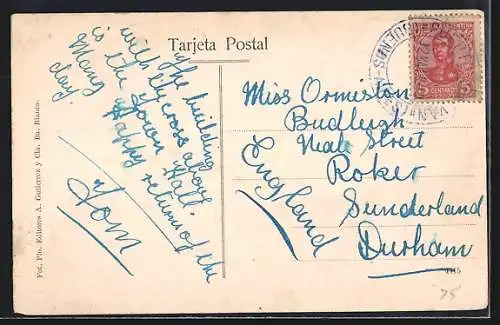 Tarjeta Postal
The building
with the cross above
is the Town Hall
Many Happy returns of the
day
Tom
Miss Ormiston
Budleigh
Neale Street
Roker
Sunderland
Durham
England
5
CENTAVOS
5
Fot. Pin. Editores A. Gutierrez y Cia. Ba. Blanca.
75